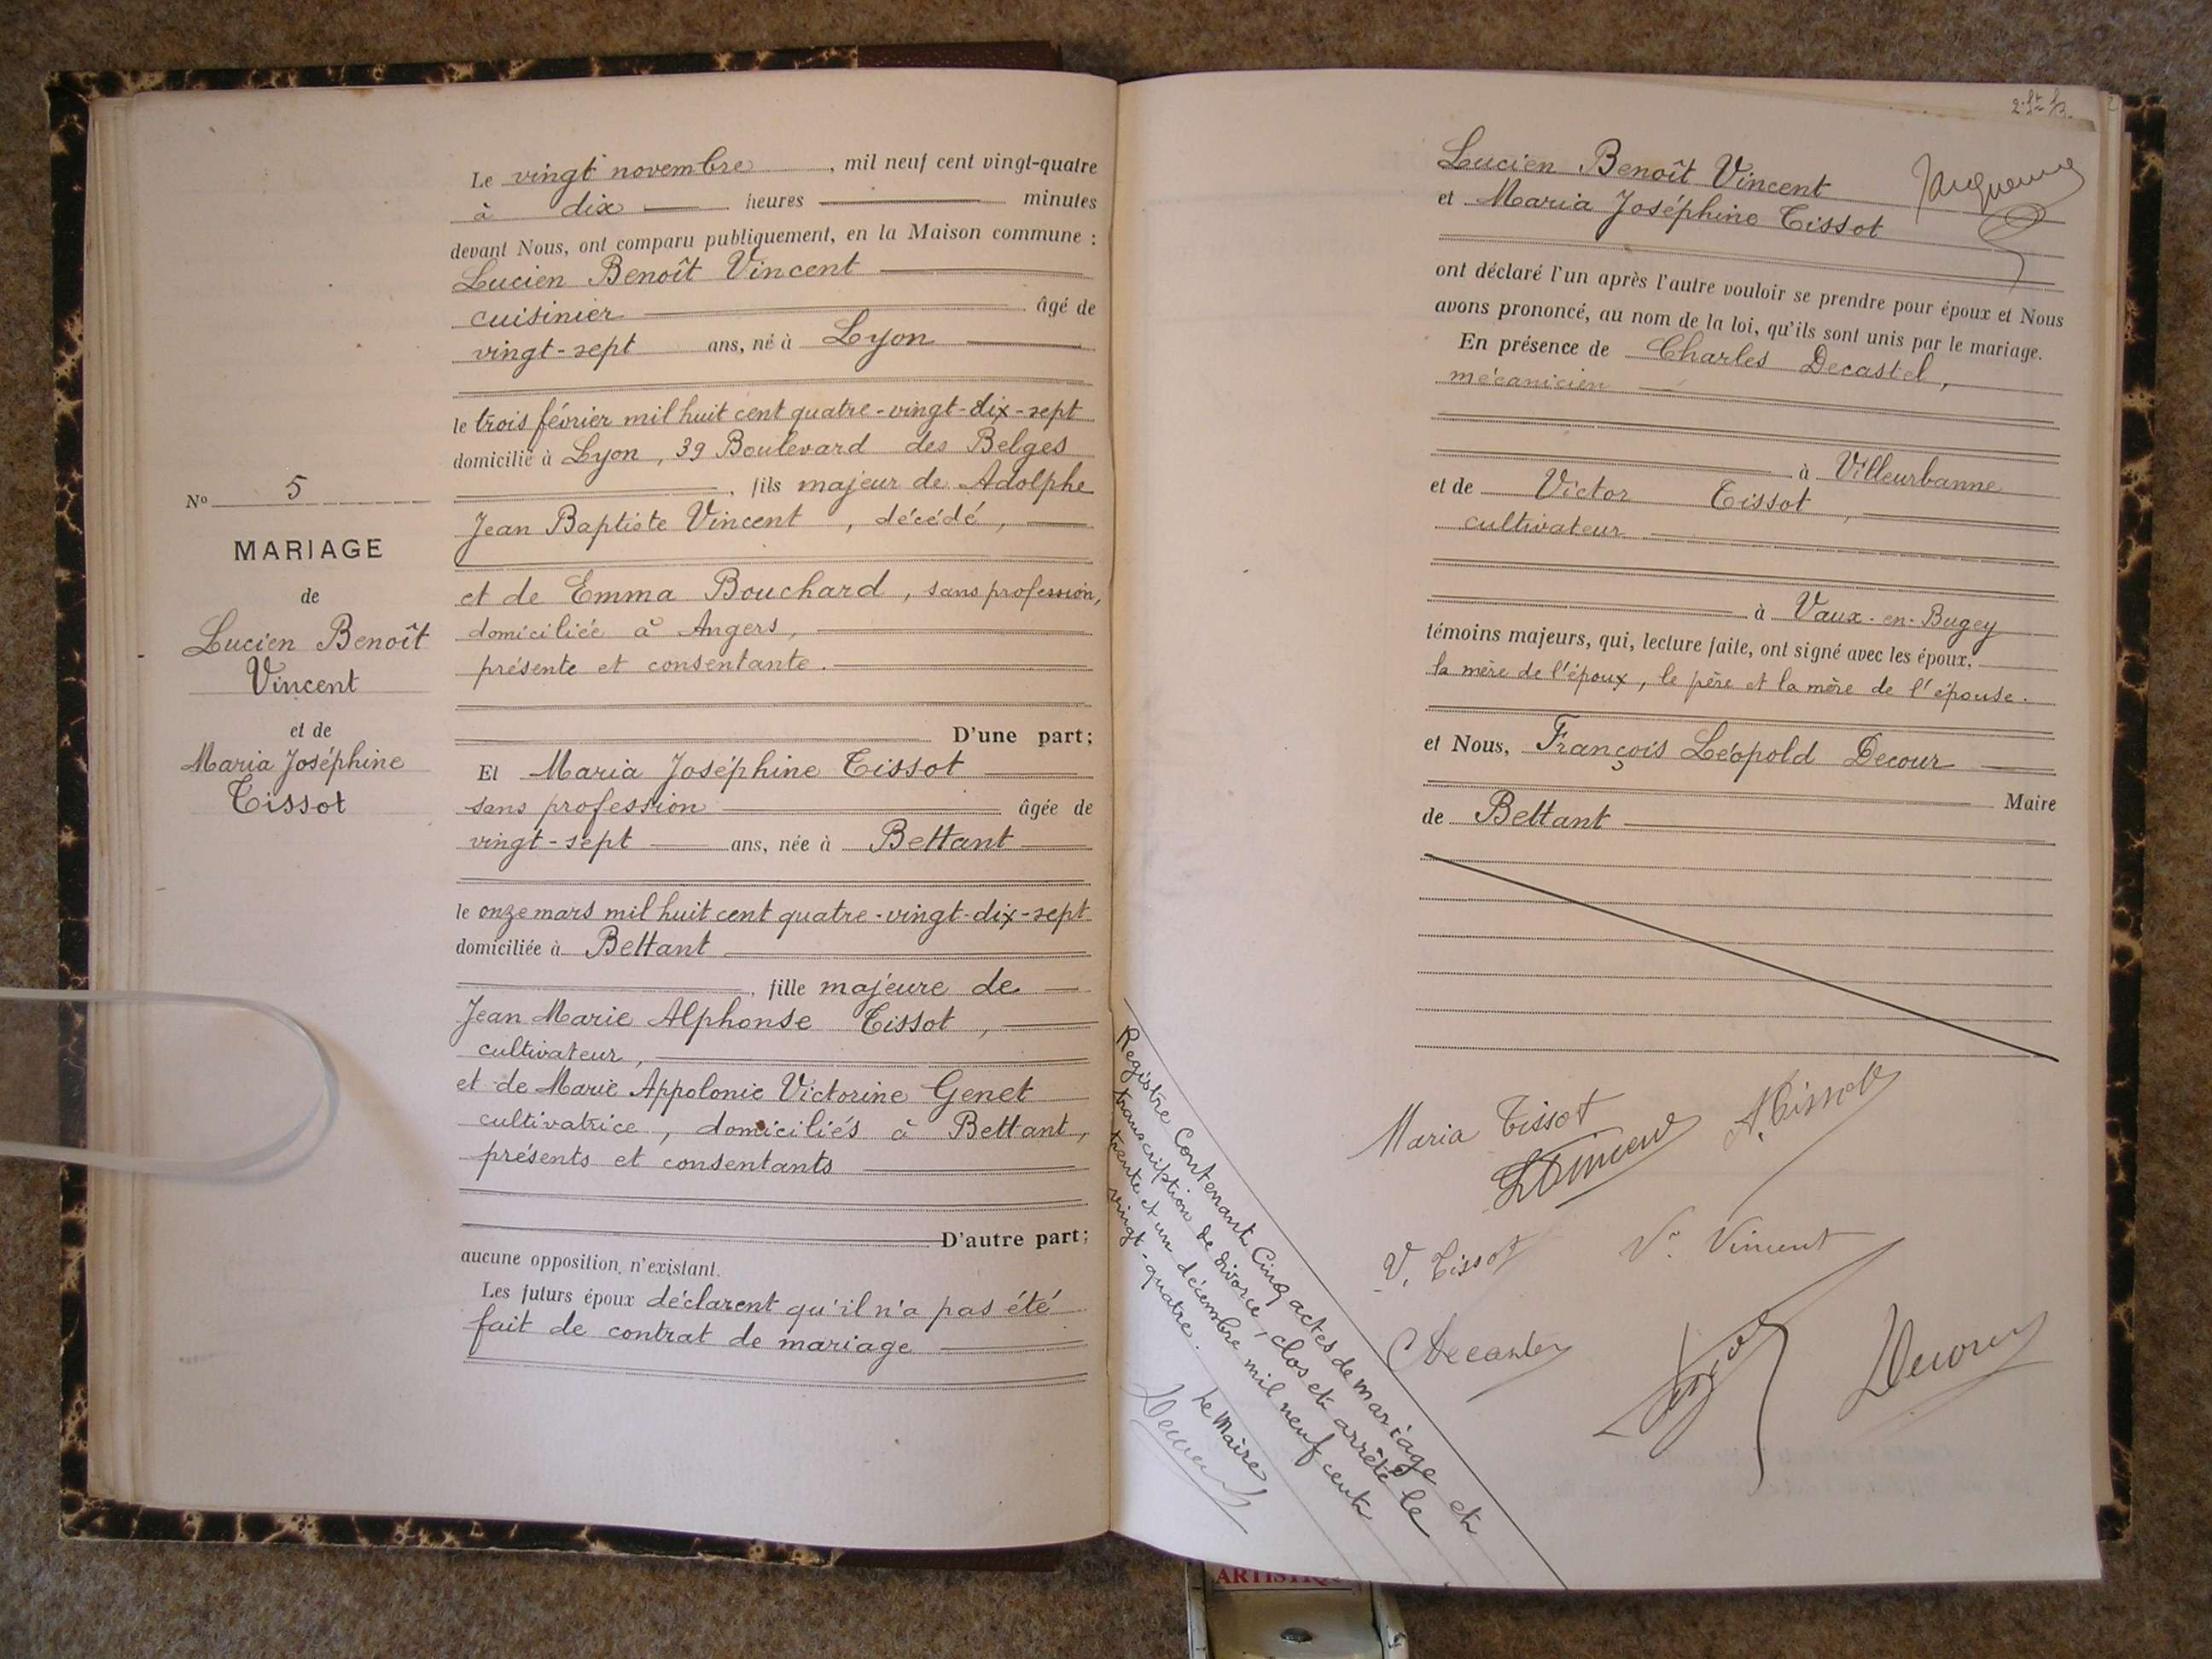 Le vingt novembre, mil neuf cent vingt-quatre
à dix heures minutes
devant Nous, ont comparu publiquement, en la Maison commune :
Lucien Benoît Vincent
cuisinier âgé de
vingt-sept ans, né à Lyon
le trois février mil huit cent quatre-vingt-dix-sept
domicilié à Lyon, 39 Boulevard des Belges
, fils majeur de Adolphe
Jean Baptiste Vincent, décédé,
et de Emma Bouchard, sans profession,
domiciliée à Angers,
présente et consentante.
D'une part;
Et Maria Joséphine Tissot
sans profession âgée de
vingt-sept ans, née à Bettant
le onze mars mil huit cent quatre-vingt-dix-sept
domiciliée à Bettant
, fille majeure de
Jean Marie Alphonse Tissot,
cultivateur,
et de Marie Appolonie Victorine Genet
cultivatrice, domiciliés à Bettant,
présents et consentants
D'autre part;
aucune opposition n'existant.
Les futurs époux déclarent qu'il n'a pas été
fait de contrat de mariage
No 5
MARIAGE
de
Lucien Benoît
Vincent
et de
Maria Joséphine
Tissot
Lucien Benoît Vincent
et Maria Joséphine Tissot
ont déclaré l'un après l'autre vouloir se prendre pour époux et Nous
avons prononcé, au nom de la loi, qu'ils sont unis par le mariage.
En présence de Charles Decastel,
mécanicien
à Villeurbanne
et de Victor Tissot,
cultivateur
à Vaux-en-Bugey
témoins majeurs, qui, lecture faite, ont signé avec les époux,
la mère de l'époux, le père et la mère de l'épouse.
et Nous, François Léopold Decour
Maire
de Bettant
Maria Tissot
A. Tissot
L Vincent
V. Tissot
Ve Vincent
Decour
Registre Contenant Cinq actes de mariage et
transcription de divorce, clos et arrêté le
trente et un décembre mil neuf cent
vingt-quatre.
Le Maire
Decour
ARTISTIQU